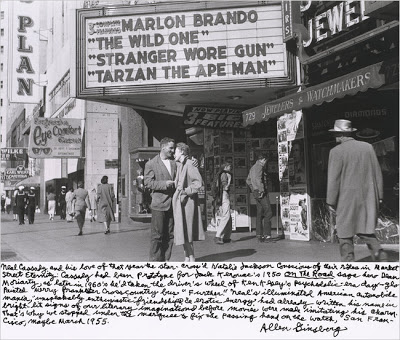 PLAN
MARLON BRANDO
"THE WILD ONE"
"STRANGER WORE GUN"
"TARZAN THE APE MAN"
JEWEL
Eye Comfort
JEWELERS & WATCHMAKERS
729
DIAMONDS
Neal Cassady and his love of that year the star-cross'd Natalie Jackson conscious of their roles in Market
Street Eternity: Cassady had been prototype for Jack Kerouac's 1950 On The Road saga hero Dean
Moriarty, as later in 1960's he'd taken the driver's wheel of Ken Kesey's psychedelic-era day-glo
painted Merry Prankster crosscountry bus "Further." Neal's illuminated American automobile
mania, "unspeakably enthusiastic" friendship & erotic energy had already written his name in
bright-lit signs of our literary imaginations before movies were made imitating his charm.
That's why we stopped under the marquee to fix the passing hand on the watch, San Fran-
cisco, maybe March 1955.
Allen Ginsberg